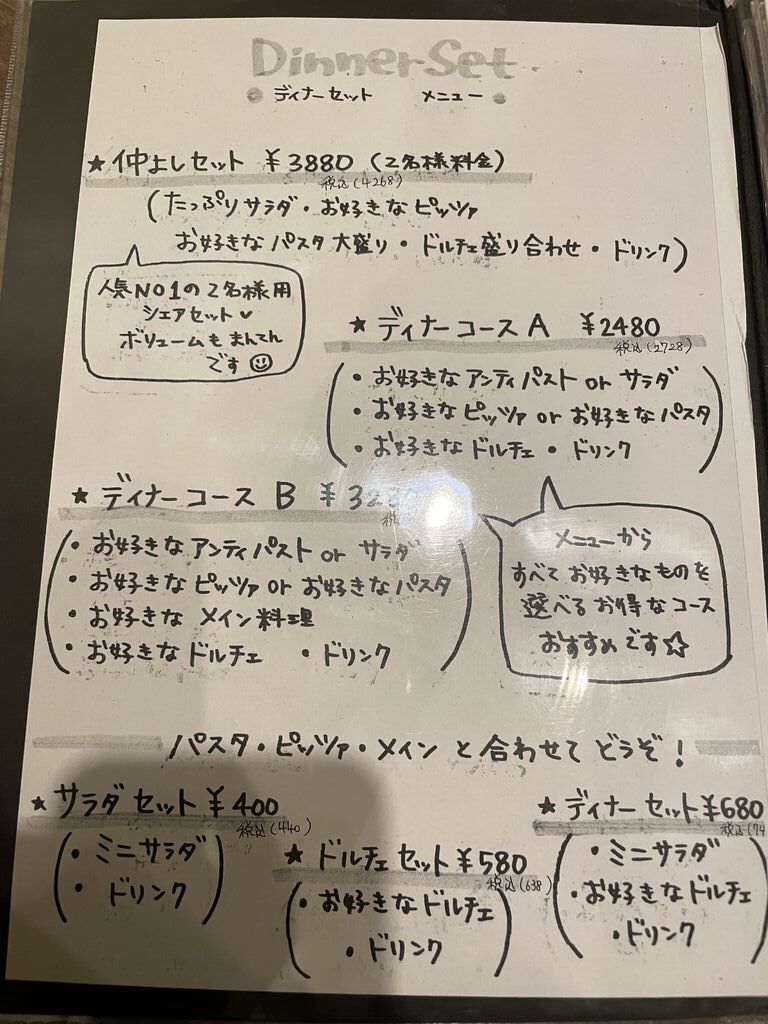 Dinner Set
ディナーセット メニュー
★ 仲よしセット ¥3880 (2名様料金)
税込(4268)
(たっぷりサラダ・お好きなピッツァ
お好きなパスタ大盛り・ドルチェ盛り合わせ・ドリンク)
人気NO1の2名様用
シェアセット♥
ボリュームもまんてん
です☺
★ ディナーコース A ¥2480
税込(2728)
・お好きなアンティパスト or サラダ
・お好きなピッツァ or お好きなパスタ
・お好きなドルチェ ・ドリンク
★ ディナーコース B
税
・お好きなアンティパスト or サラダ
・お好きなピッツァ or お好きなパスタ
・お好きな メイン料理
・お好きなドルチェ ・ドリンク
メニューから
すべてお好きなものを
選べるお得なコース
おすすめです☆
パスタ・ピッツァ・メイン と合わせて どうぞ!
★ サラダセット ¥400
税込(440)
・ミニサラダ
・ドリンク
★ ドルチェセット ¥580
税込(638)
・お好きなドルチェ
・ドリンク
★ ディナーセット ¥680
税込(74
・ミニサラダ
・お好きなドルチェ
・ドリンク